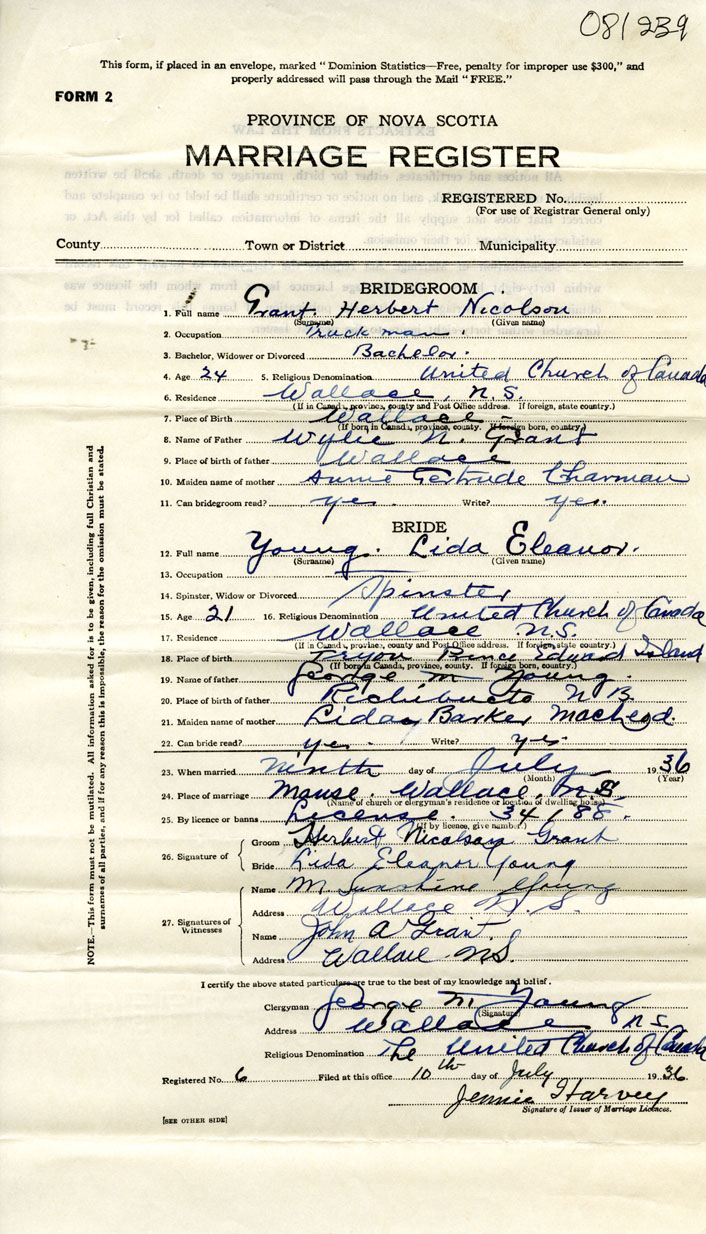 081239
This form, if placed in an envelope, marked "Dominion Statistics—Free, penalty for improper use $300," and
properly addressed will pass through the Mail "FREE."
FORM 2
PROVINCE OF NOVA SCOTIA
MARRIAGE REGISTER
REGISTERED No.
(For use of Registrar General only)
County Town or District Municipality
BRIDEGROOM
1. Full name Grant. Herbert Nicolson
(Surname) (Given name)
2. Occupation Truck man.
3. Bachelor, Widower or Divorced Bachelor.
4. Age 24 5. Religious Denomination United Church of Canada
6. Residence Wallace, N.S.
(If in Canada, province, county and Post Office address. If foreign, state country.)
7. Place of Birth Wallace
(If born in Canada, province, county. If foreign born, country.)
8. Name of Father Wylie N. Grant
9. Place of birth of father Wallace
10. Maiden name of mother Annie Gertrude Charman
11. Can bridegroom read? yes. Write? yes.
BRIDE
12. Full name Young. Lida Eleanor.
(Surname) (Given name)
13. Occupation
14. Spinster, Widow or Divorced Spinster
15. Age 21 16. Religious Denomination United Church of Canada
17. Residence Wallace N.S.
(If in Canada, province, county and Post Office address. If foreign, state country.)
18. Place of birth Tryon Prince Edward Island
(If born in Canada, province, county. If foreign born, country.)
19. Name of father George M Young.
20. Place of birth of father Richibucto N.B.
21. Maiden name of mother Lida Barker MacLeod.
22. Can bride read? yes. Write? yes.
23. When married Ninth day of July 1936
(Month) (Year)
24. Place of marriage Manse. Wallace. N.S.
(Name of church or clergyman's residence or location of dwelling house)
25. By licence or banns License. 34188.
(If by licence, give number.)
26. Signature of
Groom Herbert Nicolson Grant
Bride Lida Eleanor Young
27. Signatures of Witnesses
Name M. Sunshine Young
Address Wallace N.S.
Name John A Grant.
Address Wallace N.S.
I certify the above stated particulars are true to the best of my knowledge and belief.
Clergyman George M. Young
(Signature)
Address Wallace N.S.
Religious Denomination The United Church of Canada
Registered No. 6 Filed at this office 10th day of July 1936
Jennie Harvey
Signature of Issuer of Marriage Licences.
[SEE OTHER SIDE]
NOTE.—This form must not be mutilated. All information asked for is to be given, including full Christian and
surnames of all parties, and if for any reason this is impossible, the reason for the omission must be stated.